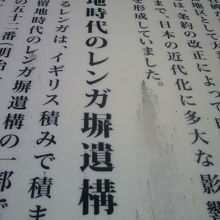 地として、日
は条約の改正によって
まで、日本の近代化に多大な影響
を形成していました。
地時代のレンガ塀遺構
るレンガは、イギリス積みで積ま
留地時代のレンガ塀遺構
の五十二番(明治
の一部で